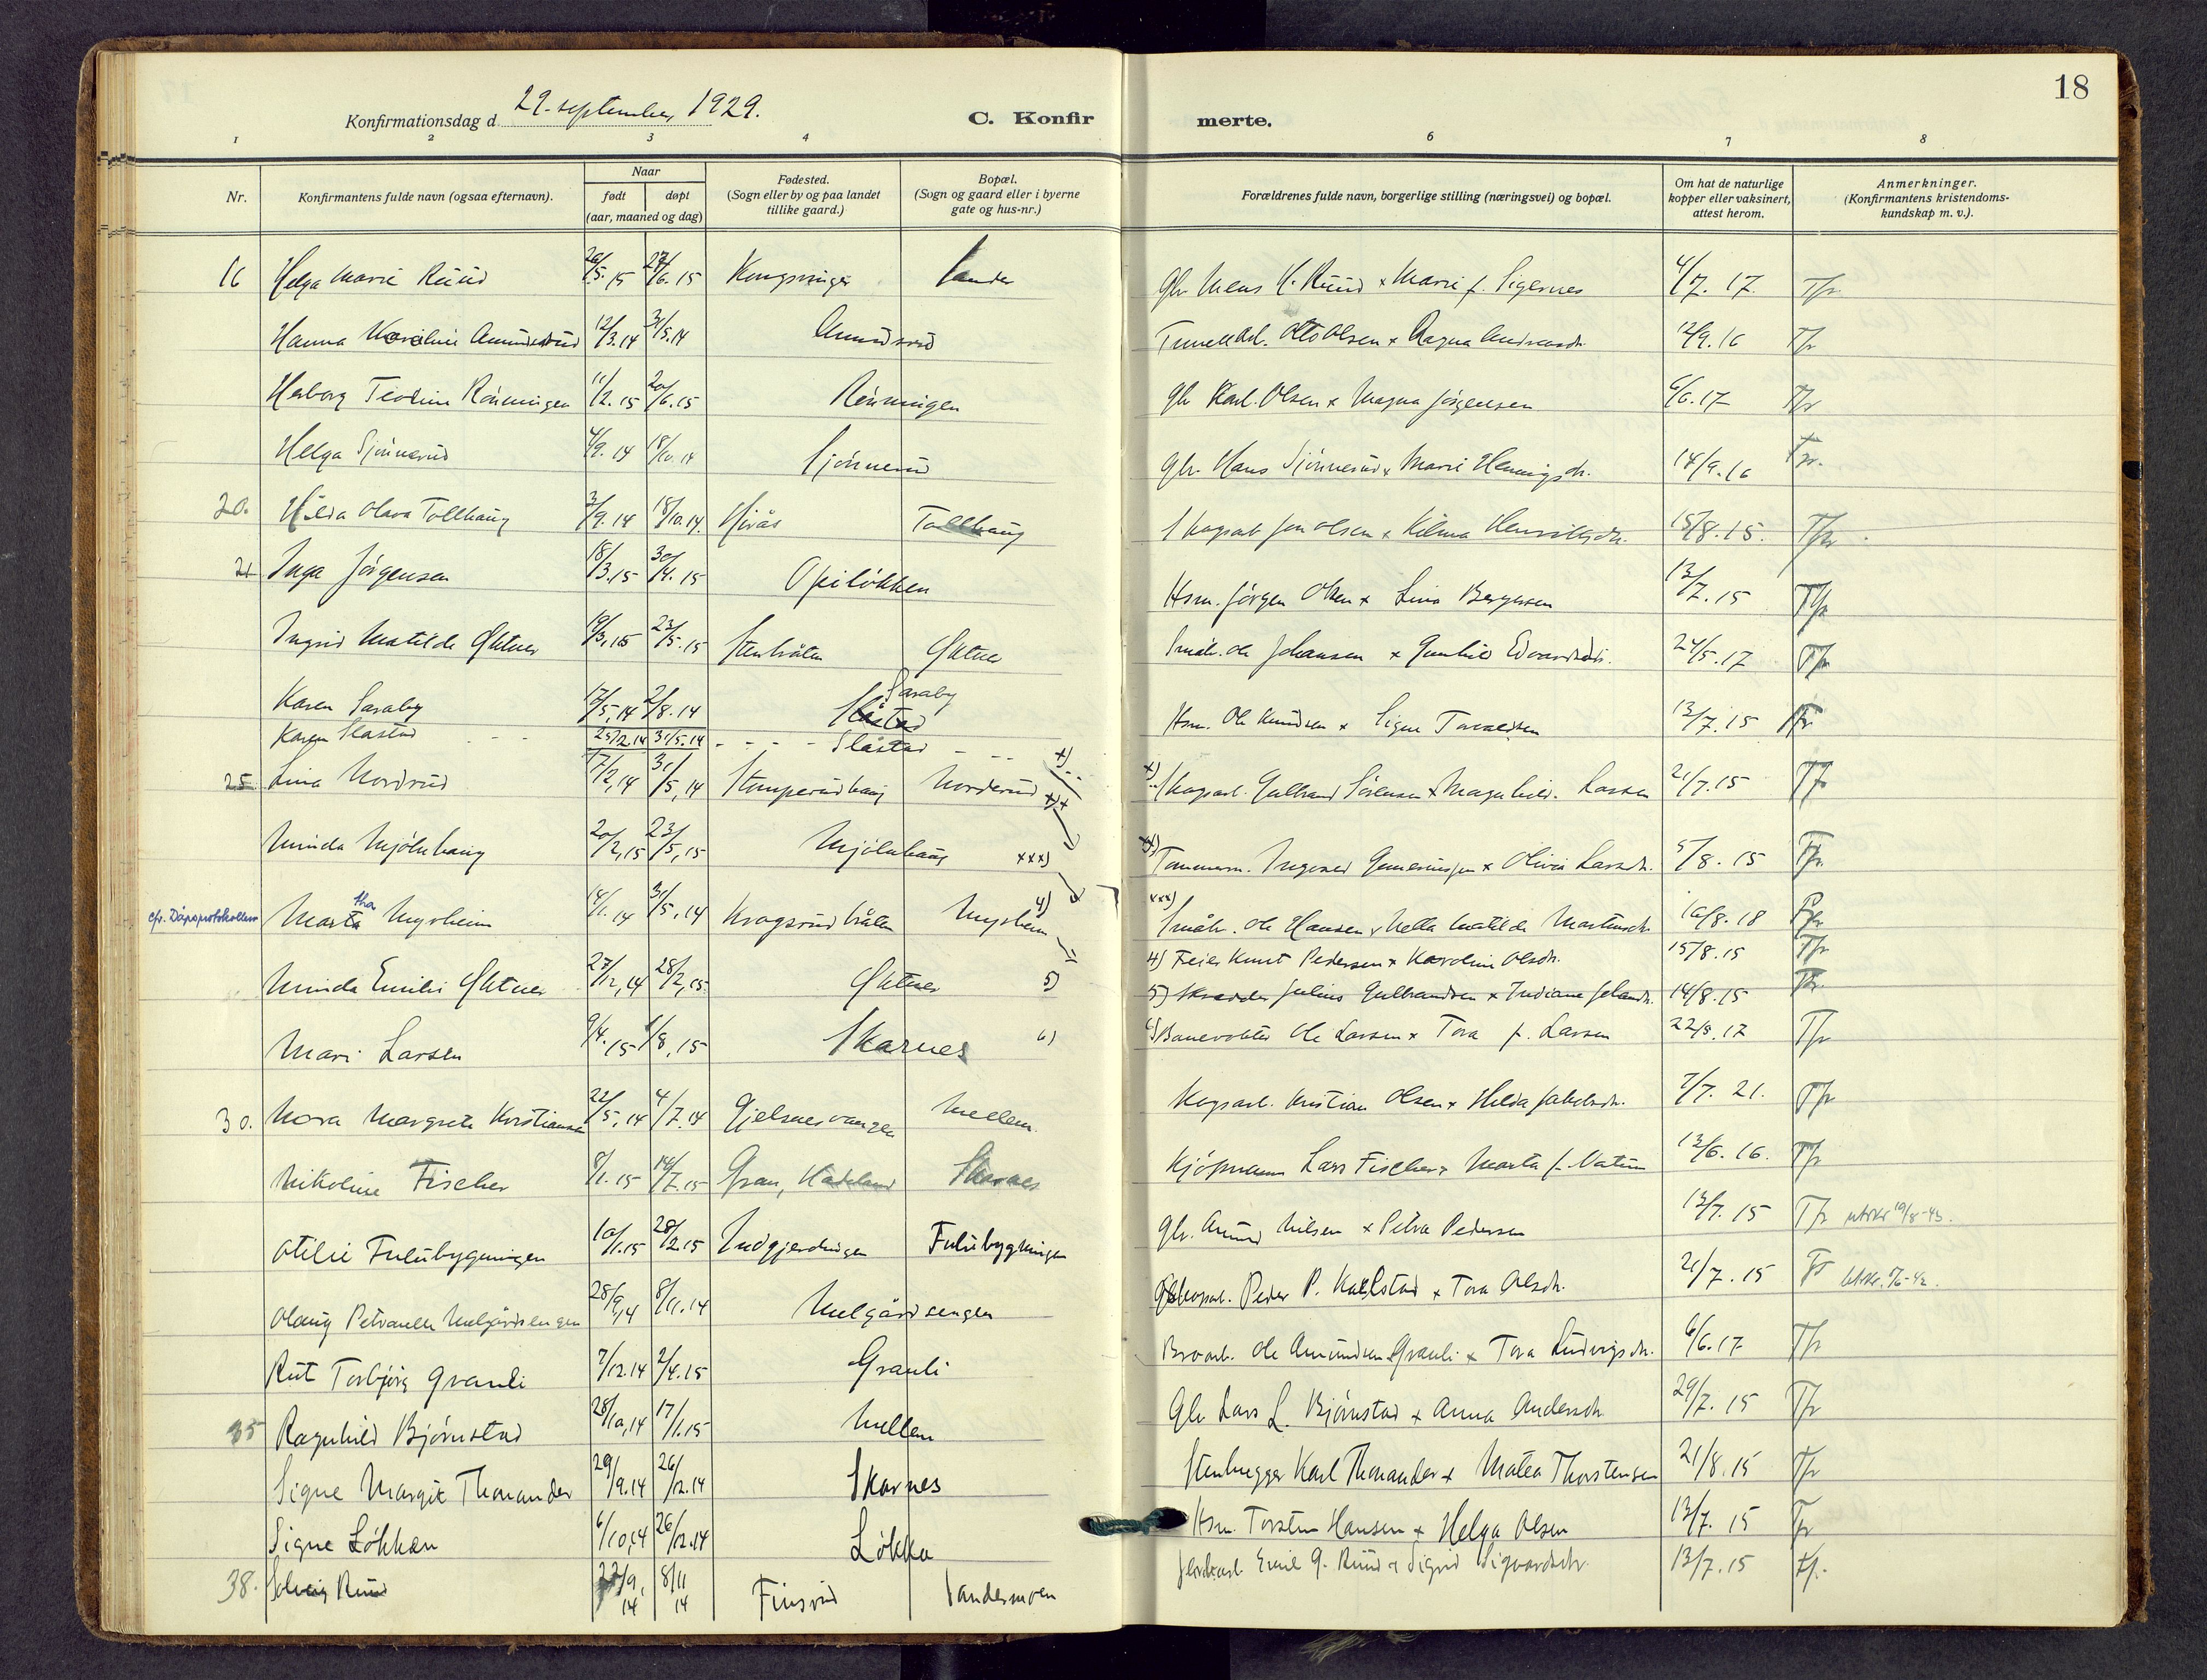 18
Konfirmationsdag d. 29. september 1929.
C. Konfirmerte.
1 2 3 4 6 7 8
Nr.
Konfirmantens fulde navn (ogsaa efternavn).
Naar
født døpt
(aar, maaned og dag)
Fødested.
(Sogn eller by og paa landet
tillike gaard.)
Bopæl.
(Sogn og gaard eller i byerne
gate og hus-nr.)
Forældrenes fulde navn, borgerlige stilling (næringsvei) og bopæl.
Om hat de naturlige
kopper eller vaksinert,
attest herom.
Anmerkninger.
(Konfirmantens kristendoms-
kundskap m. v.).
16 Helga Marie Ruud 26/5. 15 27/6. 15 Kongsvinger Sander Gbr. Mens H. Ruud x Marie f. Sigernes 4/7. 17. Tfr.
Hanna Karoline Amundsrud 12/3. 14 31/5. 14 Amundsrud Otto Olsen x Ragna 12/9. 16 Tfr
Herborg Teoline Rønningen 11/2. 15 20/6. 15 Rønningen Gbr Karl. Olsen x Magna Jörgensen 6/6. 17 Tfr
Helga Sjönnerud 4/9. 14 18/10. 14 Sjönnerud Gbr. Hans Sjönnerud x Marie Henningsdr. 14/9. 16 Tfr.
20. Hilda Olava Tollhaug 3/9. 14 18/10. 14. Tollhaug Skogsarb Jon Olsen x Hilma Henriksdr. 15/8. 15. Tfr.
21 Inga Jörgensen 18/3. 15 30/4. 15 Opilökken Hsm. Jörgen Olsen x Lina Bergersen 13/7. 15 Tfr
Ingrid Matilde Gktner 19/3, 15 23/5. 15 Stenbråten Småbr. Ole Johansen x Gunhild Edvardsdr. 24/5. 17 Tfr
Karen Saraby 17/5, 14 2/8. 14 Saraby Hsm. Ole Knudsen x Signe Torvaldsen 13/7. 15 Tfr
Karen Slåstad - - - 25/2. 14 31/5. 14 - - - - Slåstad - - - x)
25. Lina Nordrud 17/2, 14 31/5, 14 Stomperudhaug Norderud x)x x) Skogsarb. Gulbrand Sörensen x Magnhild. Larsen 21/7. 15 Tfr
Minda Mjölnhaug 20/2, 15 23/5, 15 Mjölnhaug xxx) Tømmerm. Ingvald x Olivia Larsdr. 5/8. 15 Tfr.
cfr. Dåpsprotokollen Martha Myrheim 14/1. 14 31/5, 14 Kragsrudbråten Myrheim 4) xxx) Småbr. Ole Hansen x Nella Matilde Martinsdr. 16/8. 18 Tfr
Minda Emilie 27/12, 14 28/2, 15. 5) 4) Feier Knut Pedersen x Karoline Olsdr. 15/8. 15 Tfr
5) Skredder Julius Gulbrandsen x Indiana 14/8. 15 Tfr.
Mari Larsen 9/4. 15 1/8, 15 Skarnes 6) 6) Banevokter Ole Larsen x Tora f. Larsen 22/8. 17 Tfr
30. Nora Margrete Kristiansen 22/5, 14 4/7. 14 Gjelsnesvangen Mellem Skogsarb. Kristian Olsen x Hilda Jakobsdr. 7/7. 21. Tfr
Nikoline Fischer 8/1. 15 14/7. 15 Gran, Hadeland Skarnes Kjöpmann Lars Fischer x Marta f. 13/6. 16. Tfr
Otilie Fulubygningen 10/1. 15 28/2. 15 Fulubygningen Gbr. Amund Nilsen x Petra Pedersen 13/7. 15 Tfr utskr. 19/8-43.
Olaug Petranelle Melgårdsengen 28/9, 14 8/11. 14 Melgårdsengen Skogsarb. Peder P. Karlstad x Tora Olsdr. 21/7. 15
Rut Torbjörg Granli 7/12. 14 2/4. 15 Granli Ole Amundsen Granli x Tora Ludvigsdr. 6/6. 17 Tfr
35 Ragnhild Björnstad 28/10, 14 17/1. 15 Mellem Gbr Lars L. Björnstad x Anna Andersdr. 29/7. 15 Tfr
Signe Margit Thonander 29/9. 14 26/12. 14 Skarnes Stenhugger Karl Thonander x Matea Thorstensen 21/8. 15 Tfr
Signe Lökken 6/10, 14 26/12. 14 Lökka Hsm. Torsten Hansen x Helga Olsen 13/7. 15 Tfr
38. Solveig Ruud 22/9, 14 8/11 14 Finsrud Sandermoen Emil G. Ruud x Sigrid Sigvardsdr. 13/7. 15 tfr.